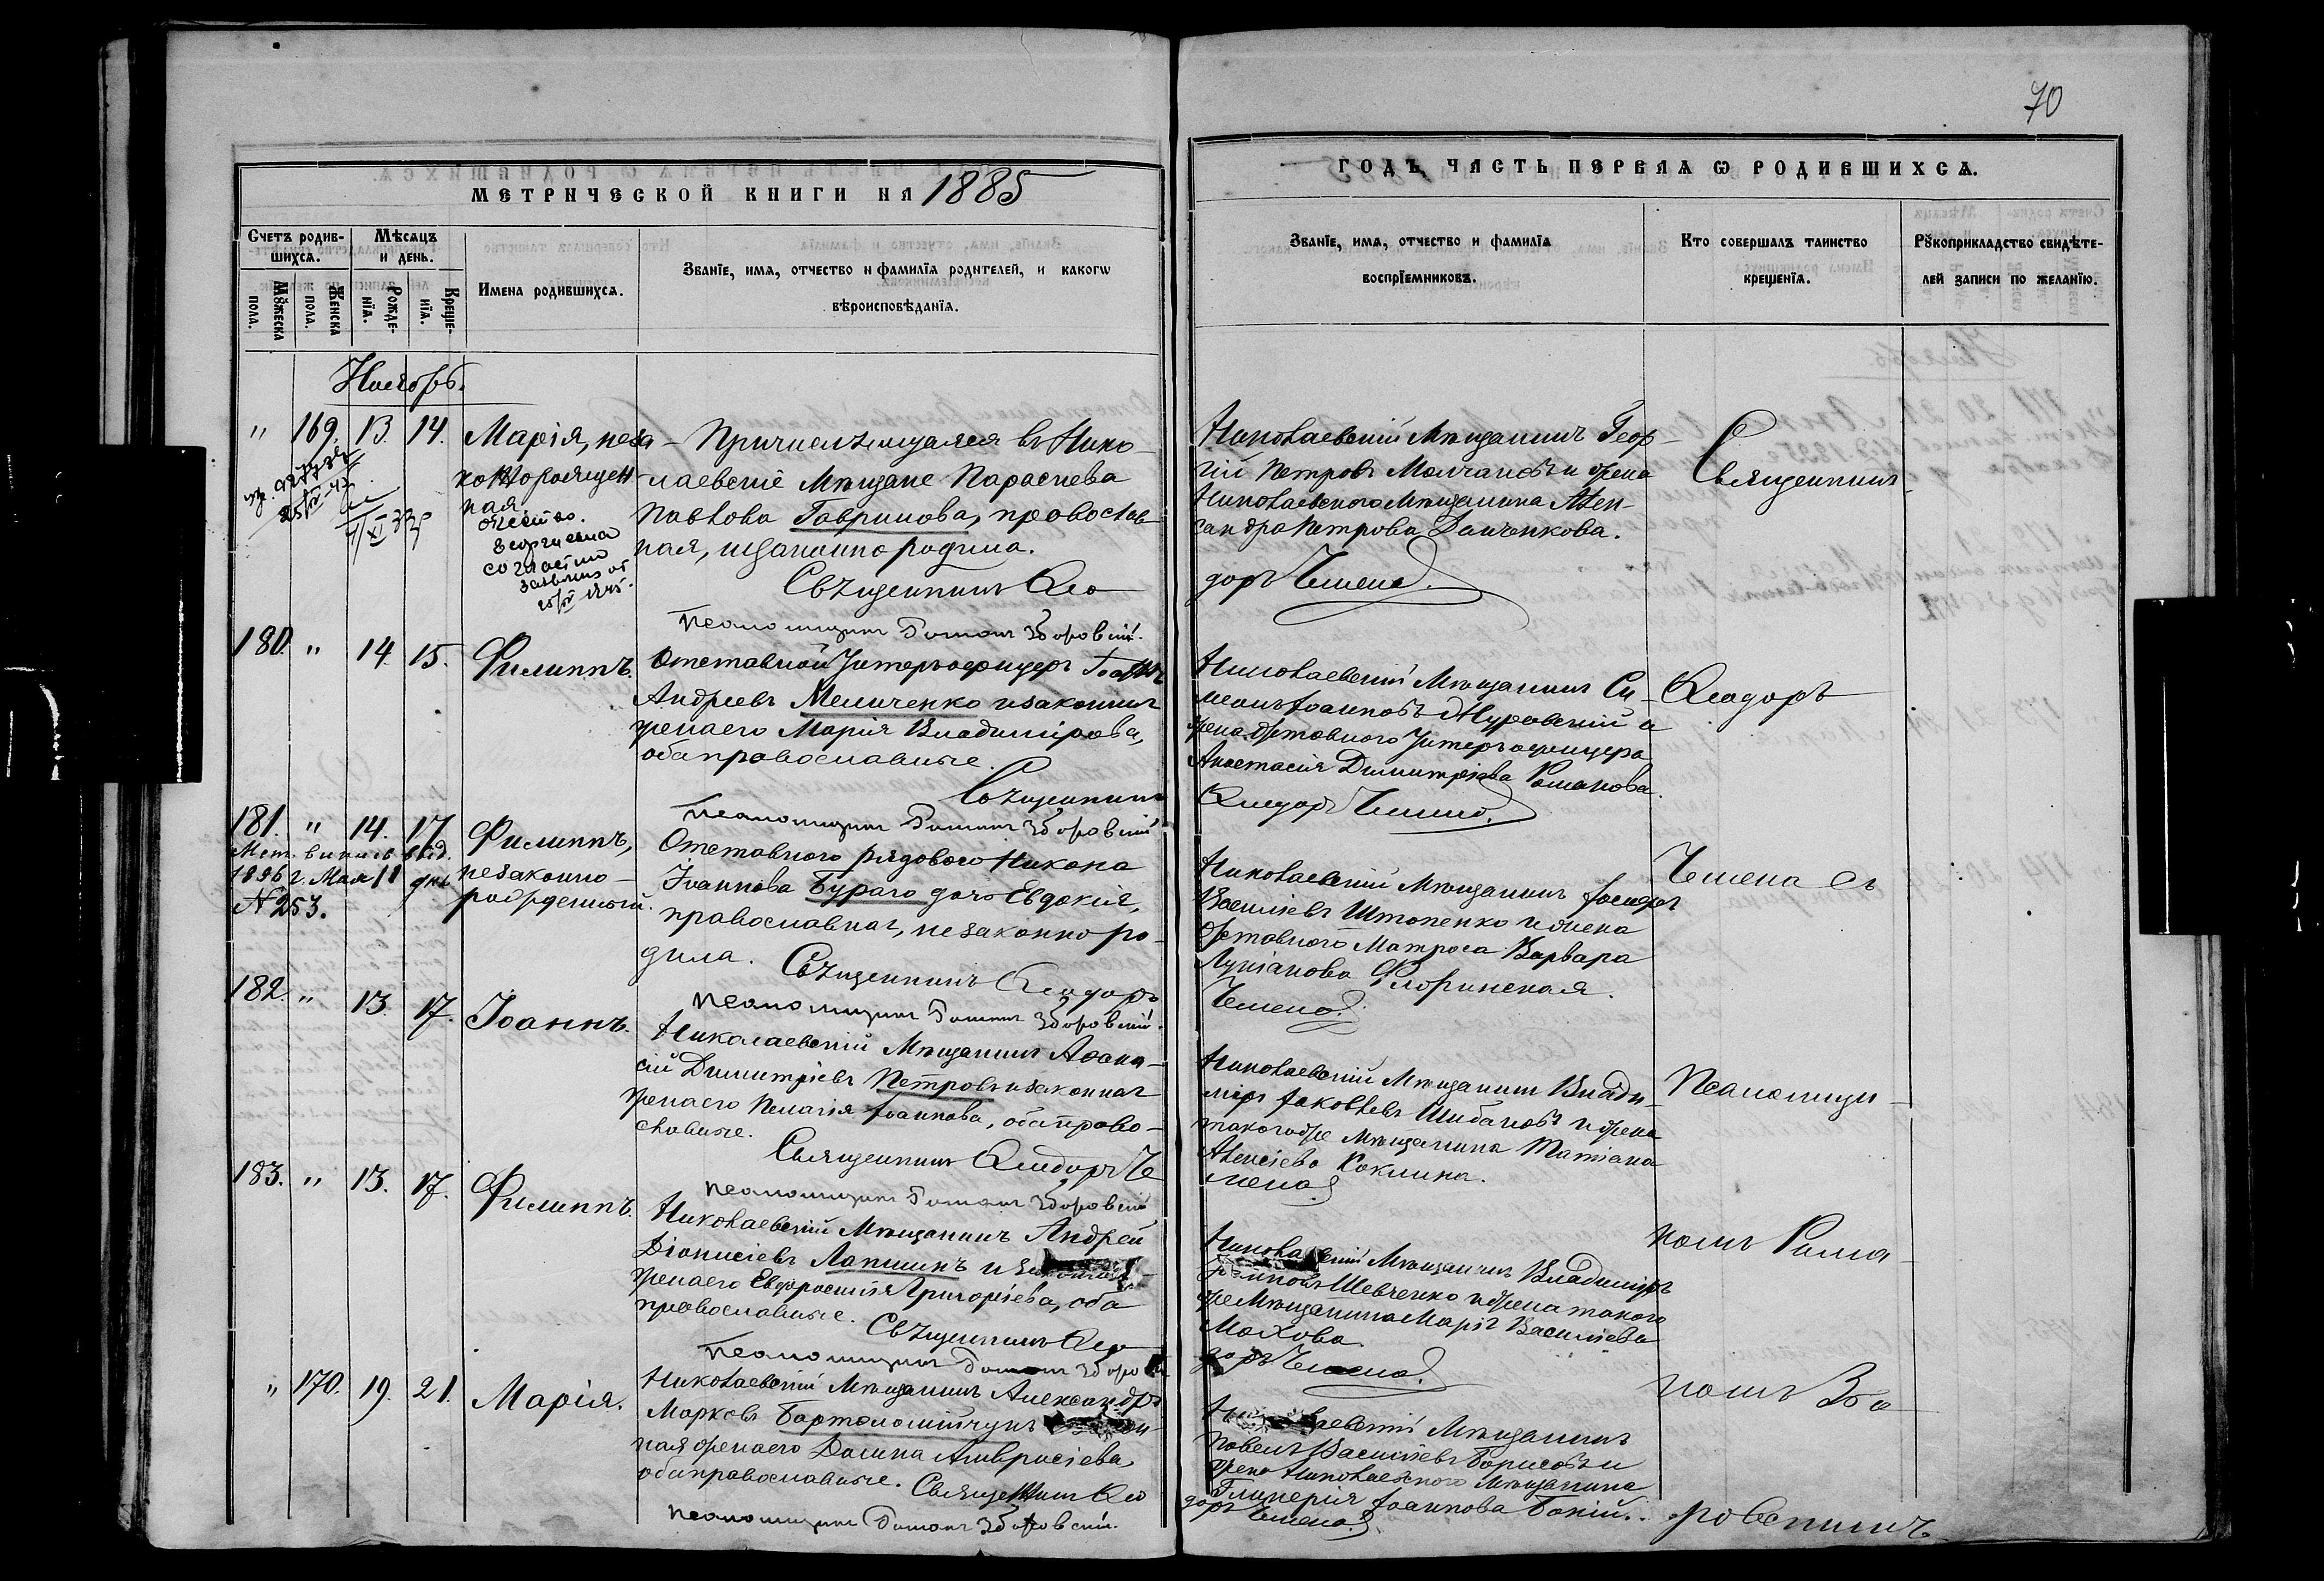 70
МЕТРИЧЕСКОЙ КНИГИ НА 1885
ГОДЪ, ЧАСТЬ ПЕРВАЯ Ѡ РОДИВШИХСЯ.
Счетъ родив-
шихся.
Мѣсяцъ
и день.
Мꙋжеска
пола.
Женска
пола.
Рожде-
нїя.
Креще-
нїя.
Имена родившихся.
Званїе, имя, отчество и фамилїя родителей, и какогѡ
вѣроисповѣданїя.
Званїе, имя, отчество и фамилїя
воспрїемниковъ.
Кто совершалъ таинство
крещенїя.
Рꙋкоприкладство свидѣте-
лей записи по желанїю.
Ноябрь.
" 169. 13. 14.
Марія, неза-
конорожден-
ная.
отчество
Георгиевна
согласно
Причисляющаяся въ Нико-
лаевскіе Мѣщане Параскева
Павлова Гаврилова, православ-
ная, незаконно родила.
Священникъ Ѳео
Псаломщикъ Романъ Зборовскій.
Николаевскій Мѣщанинъ Геор-
гій Петровъ Молчановъ и жена
Николаевского Мѣщанина Алек-
сандра Петрова Данченкова.
доръ Чемена.
Священникъ
180. " 14. 15.
Филиппъ.
Отставной Унтеръ офицеръ Іоаннъ
Андреевъ Мельниченко и законная
жена его Марія Владимірова,
оба православные.
Священникъ
Псаломщикъ Романъ Зборовскій
Николаевскій Мѣщанинъ Си-
меонъ Іоанновъ Журовскій и
жена Отставного Унтеръ офицера
Анастасія Димитріева Романова.
Ѳеодоръ Чемена.
Ѳеодоръ
181. " 14. 17.
Мет. выпись выд.
1896 г. Мая 11 дня
№ 253.
Филиппъ,
незаконно-
рожденный.
Отставного рядового Никона
Іоаннова Бураго дочь Евдокія,
православная, незаконно ро-
дила.
Священникъ Ѳеодоръ
Псаломщикъ Романъ Зборовскій.
Николаевскій Мѣщанинъ Іосифъ
Васильевъ Штопенко и жена
Отставного Матроса Варвара
Лукіанова Флоринская.
Чемена.
Чемена съ
182. " 13. 17.
Іоаннъ.
Николаевскій Мѣщанинъ Аѳана-
сій Димитріевъ Петровъ и законная
жена его Пелагія Іоаннова, оба право-
славные.
Священникъ Ѳеодоръ Че
Псаломщикъ Романъ Зборовскій
Николаевскій Мѣщанинъ Влади-
міръ Іаковлевъ Шибановъ и жена
такого же Мѣщанина Татіана
Алексіева Коклина.
мена.
Псаломщи-
183. " 13. 17.
Филиппъ.
Николаевскій Мѣщанинъ Андрей
Діонисіевъ Лапшинъ и законная
жена его Евфросинія Григоріева, оба
православные.
Священникъ Ѳео
Псаломщикъ Романъ Зборовскій
Николаевскій Мѣщанинъ Владиміръ
Шевченко и жена такого
же Мѣщанина Марія Васильева
Махова
доръ Чемена.
комъ Рома-
" 170. 19. 21.
Марія.
Николаевскій Мѣщанинъ Александръ
Марковъ Бартоломійчукъ
ная жена его Домна Амвросіева
оба православные. Священникъ Ѳео
Псаломщикъ Романъ Зборовскій.
Николаевскій Мѣщанинъ
Павелъ Васильевъ Борисовъ и
жена Николаевского Мѣщанина
Гликерія Іоаннова Бокій.
доръ Чемена.
номъ Збо-
ровскимъ.